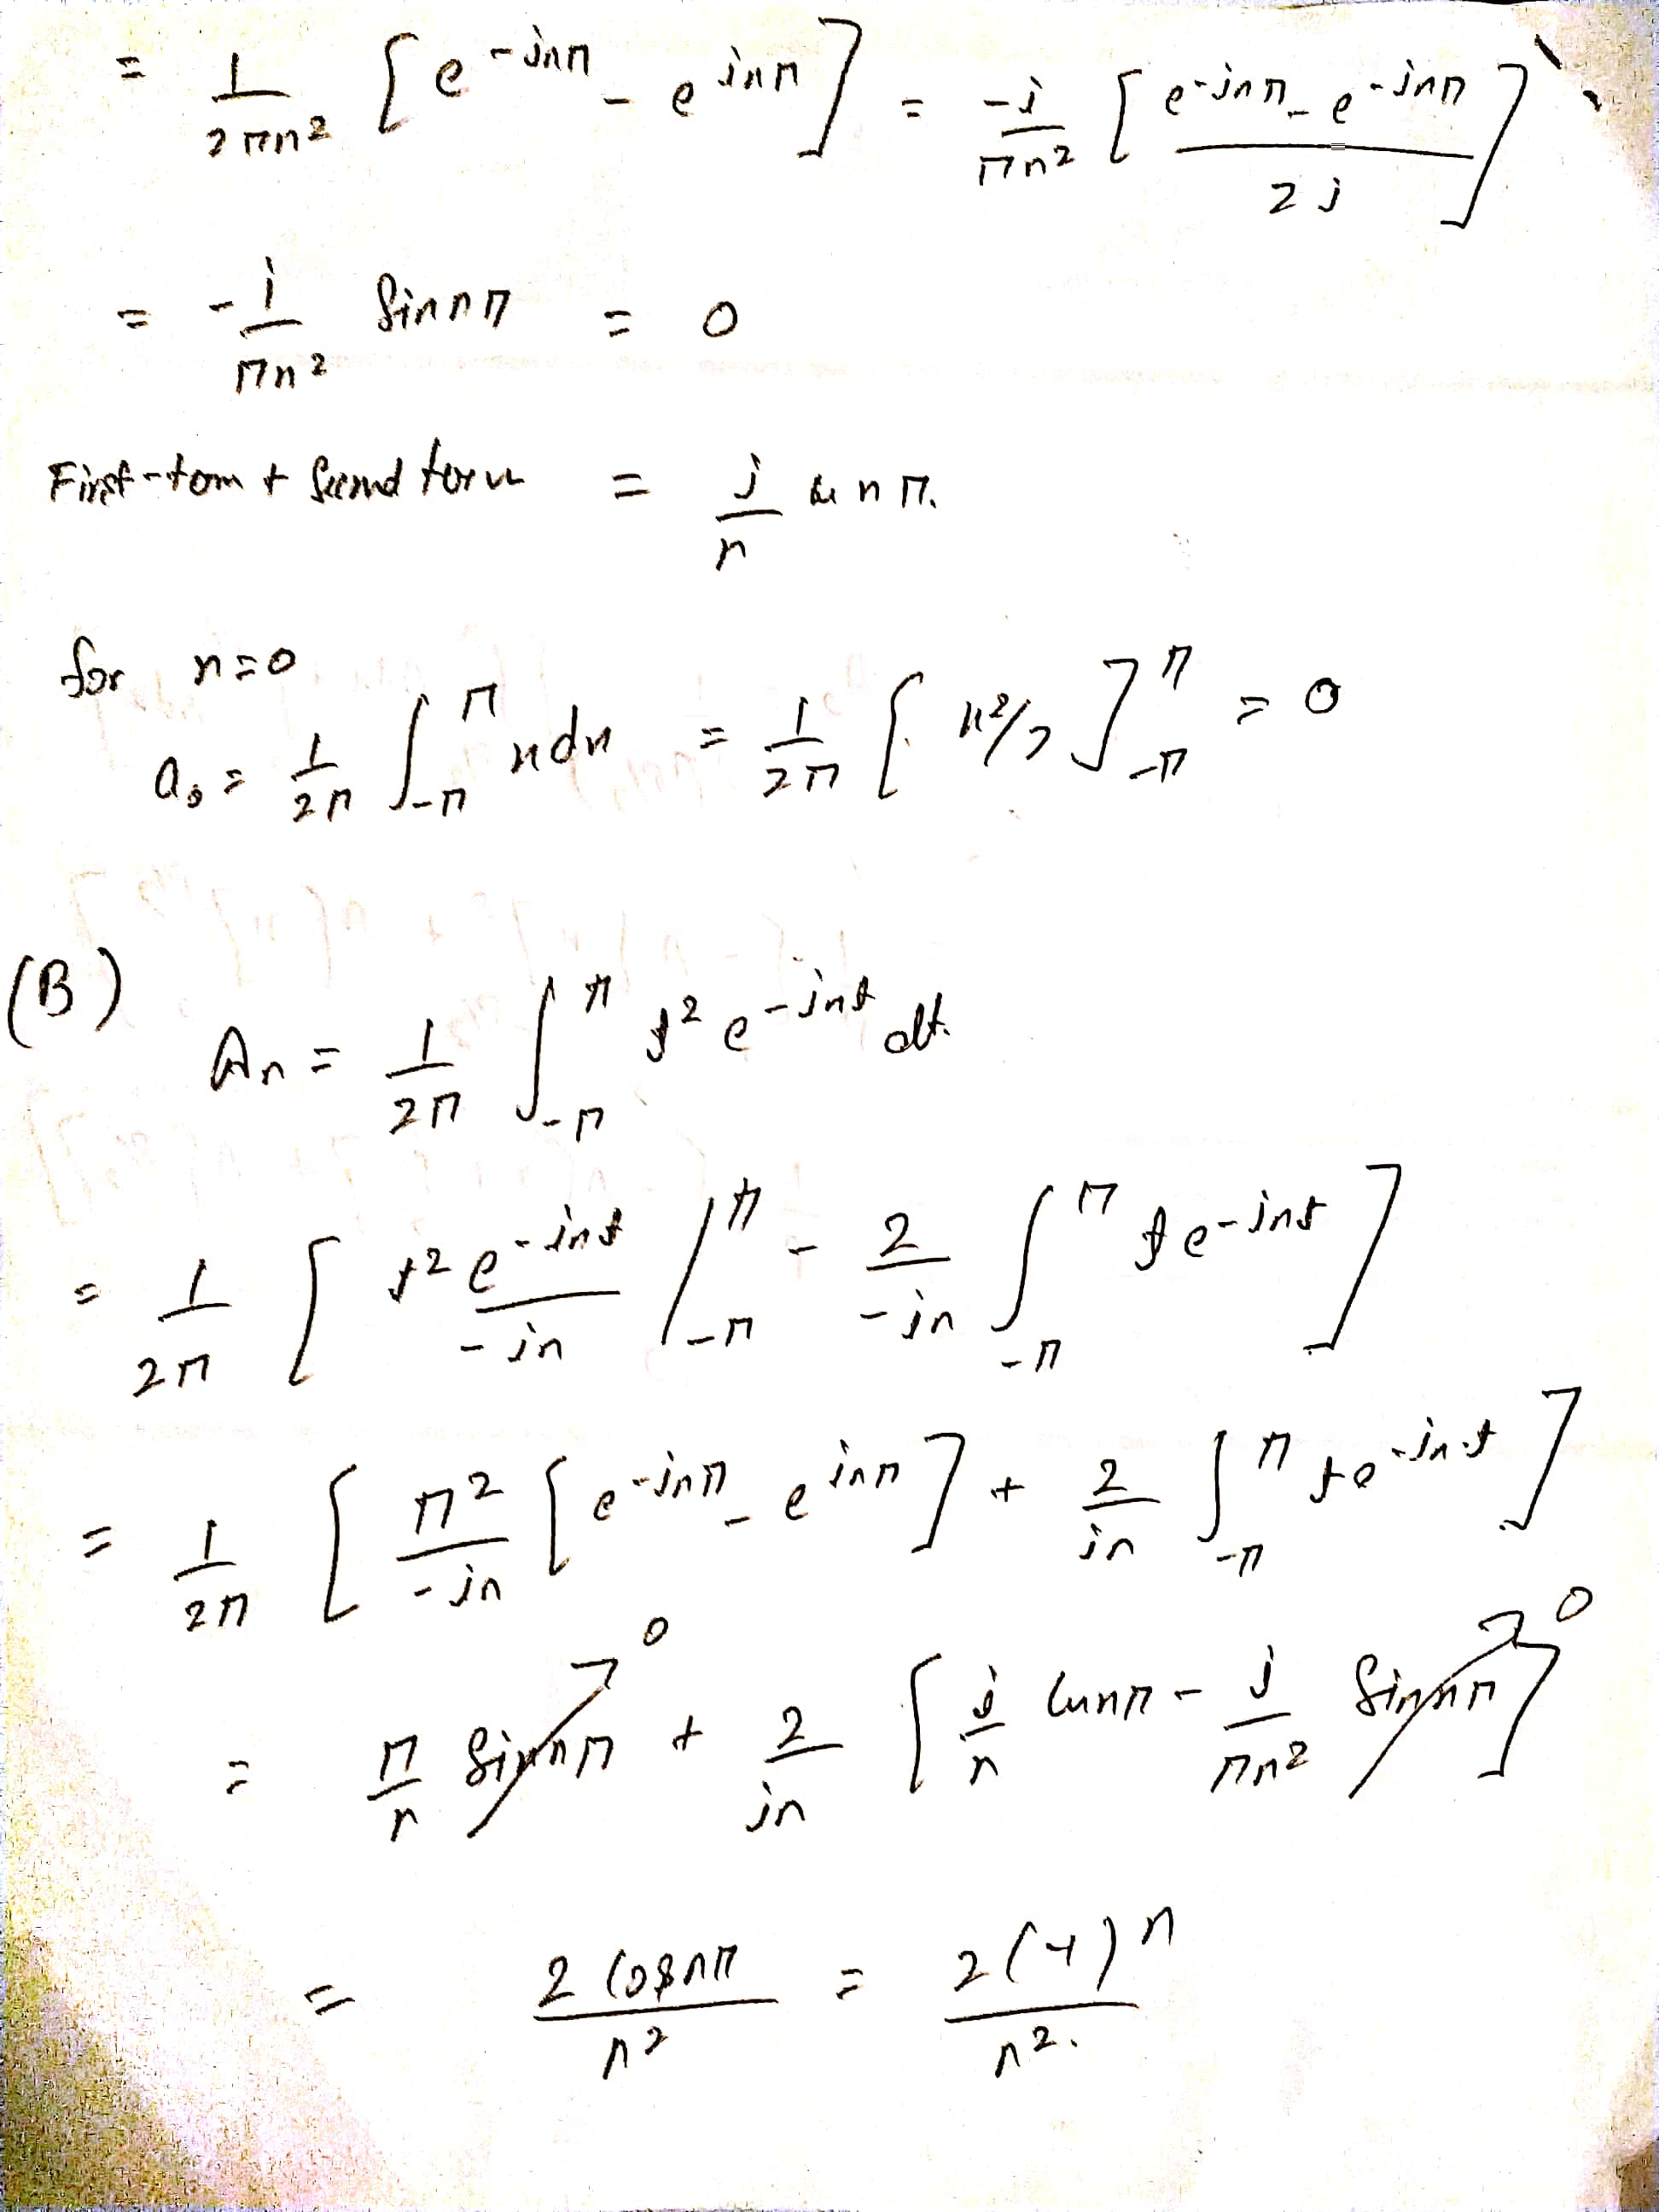 = 1/2πn² [e^-jnπ - e^jnπ] = -j/πn² [(e^-jnπ - e^-jnπ)/2j]
= -j/πn² Sin nπ = 0
First term + Second term = j/n cos nπ.
for n=0
a₀ = 1/2π ∫_-π^π x dx = 1/2π [x²/2]_-π^π = 0
(B)
An = 1/2π ∫_-π^π t² e^-jnt dt.
= 1/2π [t² e^-jnt/-jn |_-π^π - 2/-jn ∫_-π^π t e^-jnt]
= 1/2π [π²/-jn [e^-jnπ - e^jnπ] + 2/jn ∫_-π^π t e^-jnt]
= π/n Sin nπ → 0 + 2/jn [j/n Cos nπ - j/πn² Sin nπ → 0]
= 2 Cos nπ/n² = 2(-1)^n/n².